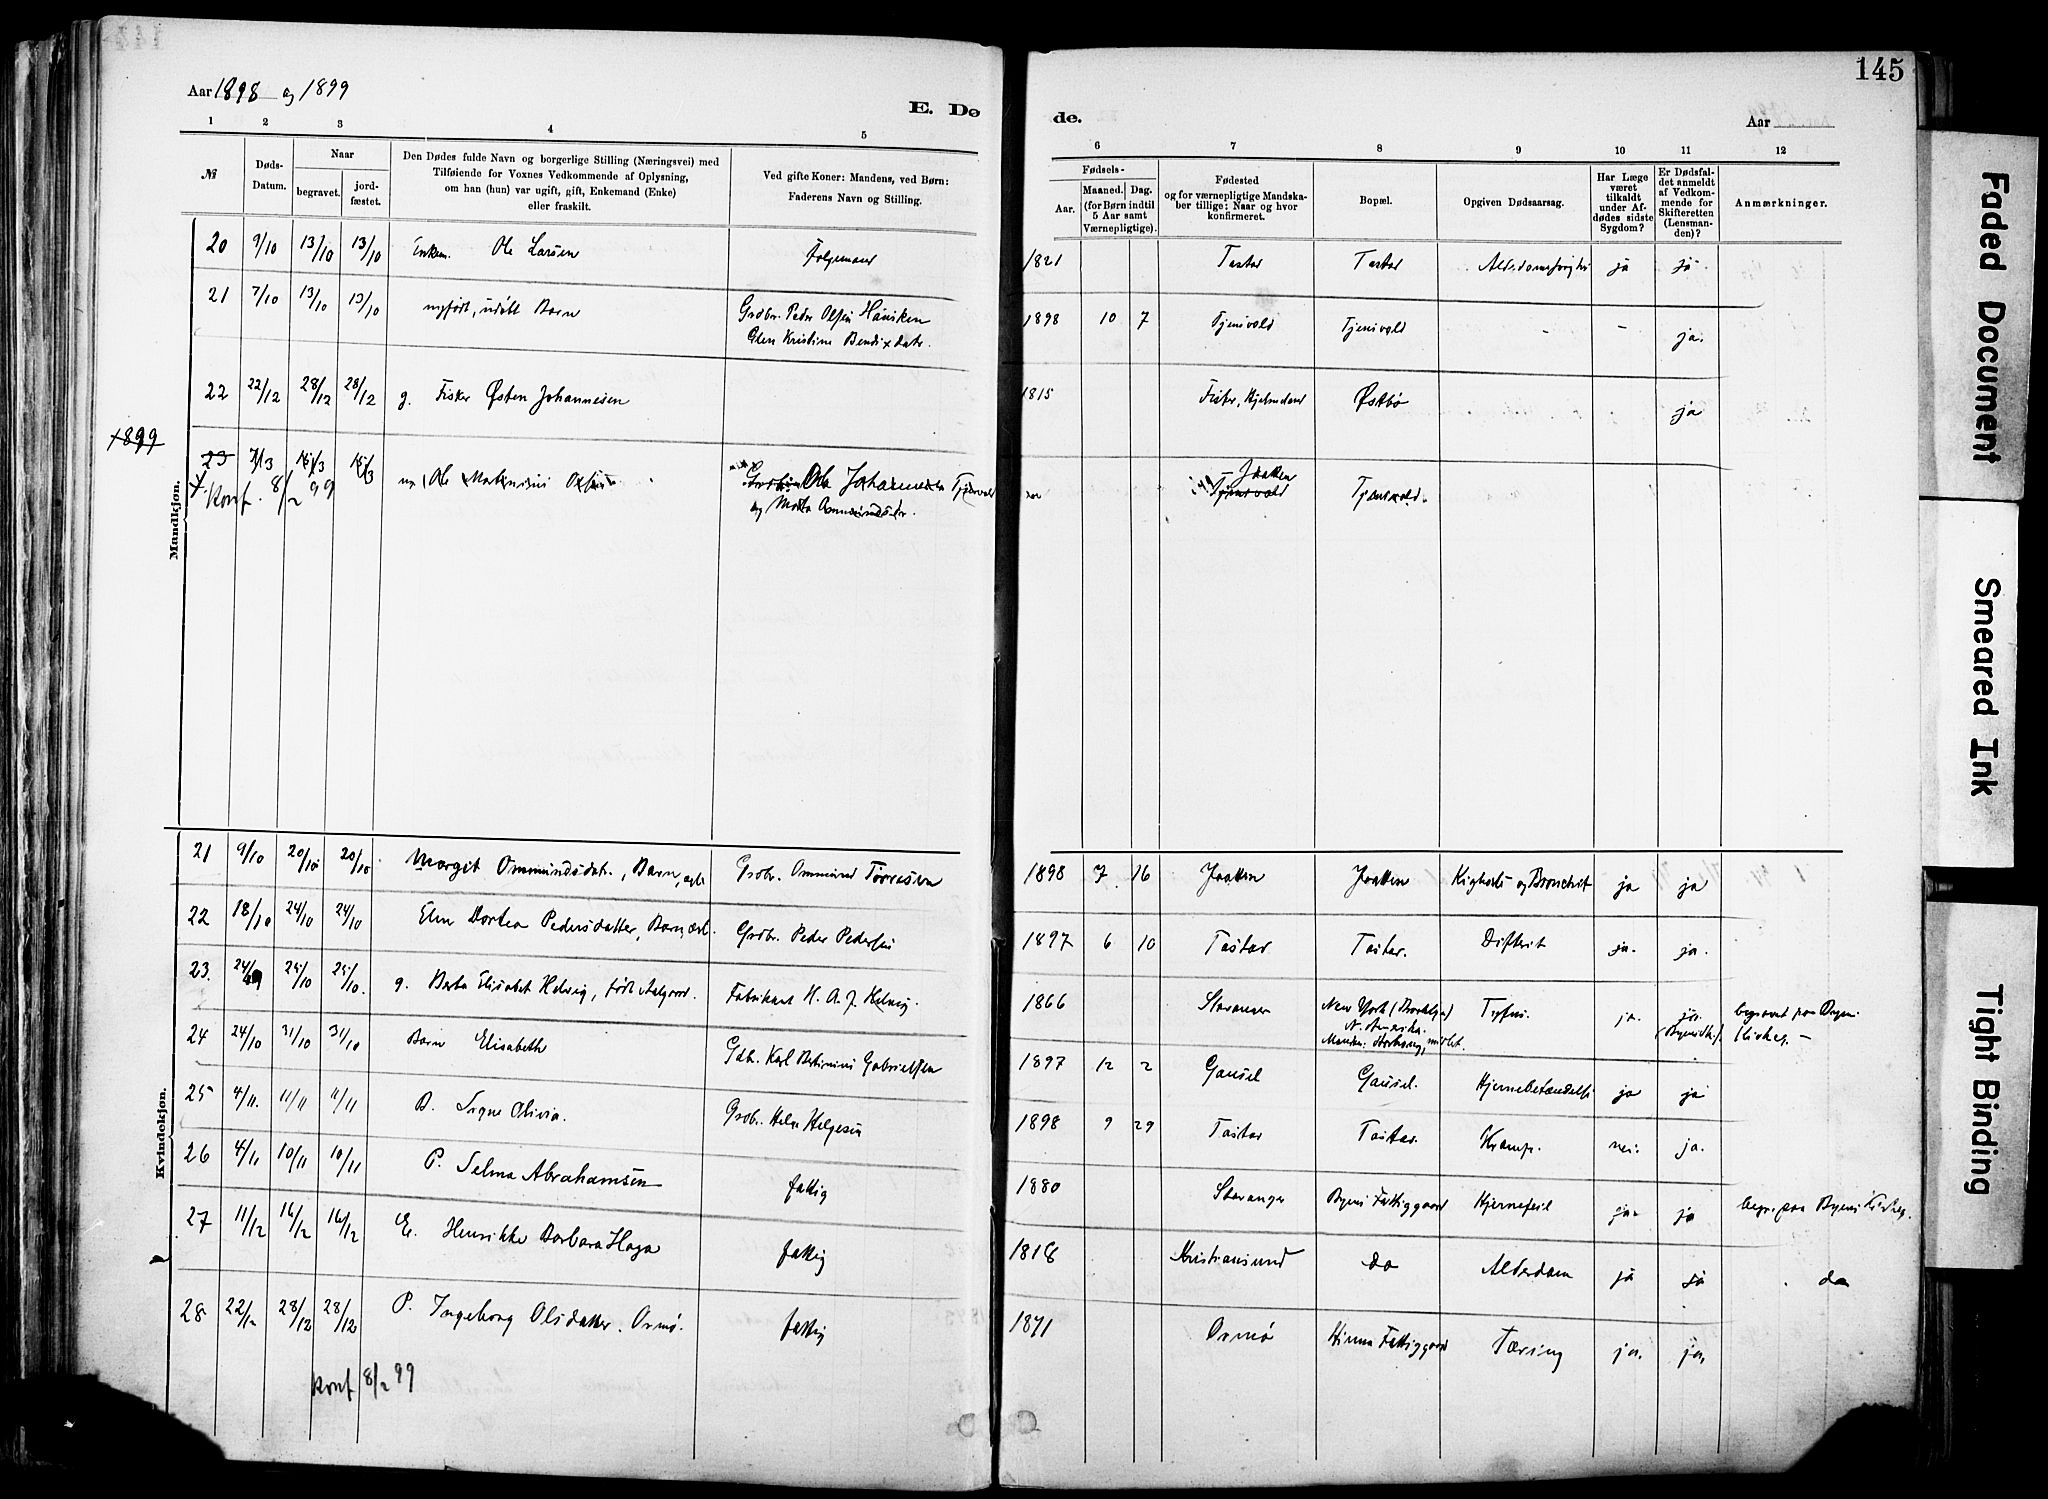 145
Aar 1898 og 1899
E. Dø
de.
Aar
1
2
3
4
5
6
7
8
9
10
11
12
№
Døds-
Datum.
Naar
begravet.
jord-
fæstet.
Den Dødes fulde Navn og borgerlige Stilling (Næringsvei) med
Tilføiende for Voxnes Vedkommende af Oplysning,
om han (hun) var ugift, gift, Enkemand (Enke)
eller fraskilt.
Ved gifte Koner: Mandens, ved Børn:
Faderens Navn og Stilling.
Fødsels-
Aar.
Maaned.
Dag.
(for Børn indtil
5 Aar samt
Værnepligtige).
Fødested
og for værnepligtige Mandska-
ber tillige: Naar og hvor
konfirmeret.
Bopæl.
Opgiven Dødsaarsag.
Har Læge
været
tilkaldt
under Af-
dødes sidste
Sygdom?
Er Dødsfal-
det anmeldt
af Vedkom-
mende for
Skifteretten
(Lensman-
den)?
Anmærkninger.
Mandkjøn.
20 9/10 13/10 13/10 Enkem. Ole Larsen Folgemand 1821 Tastad Tastad ja ja
21 7/10 13/10 13/10 nyfødt, udøbt Barn Grdbr. Peder Olsen 1898 10 7 Tjensvold Tjensvold - - ja.
Elen Kristine Bendixdatr.
22 22/12 28/12 28/12 g. Fisker Østen Johannesen 1815 Fister, Hjelmeland Østbø ja
1899
23 Ole Johannesen Tjensvold Jaatten Tjensvold Tjensvold.
Konf. 8/2 99
Kvindekjøn.
21 9/10 20/10 20/10 Margit Ommundsdatr., Barn, ægte Grdbr. Ommund Torresen 1898 7 16 Jaatten Jaatten Kighoste og Bronchit ja ja
22 18/10 24/10 24/10 Elen Dortea Pedersdatter, Barn, ægt. Grdbr. Peder Pedersen 1897 6 10 Tastad Tastad. Difterit ja. ja.
23. 24/9 25/10 25/10. g. Berta Elisabet Helvig, født Aalgaard. Fabrikant H. A. J. Helvig 1866 Stavanger New York (Brooklyn) Tyfus. ja. ja. begravet paa Byens
N. Amerika. Kirkeg. -
24 24/10 31/10 31/10 Barn Elisabeth Gdb. Karl Bertinius Gabrielsen 1897 12 2 Gausel Gausel. Hjernebetændelse ja ja
25 4/11. 11/11 11/11 B. Signe Olivia. Grdbr. Helge Helgesen 1898 9 29 Tastad Tastad. Krampe. nei. ja.
26 4/11 10/11 10/11 P. Selma Abrahamsen fattig 1880 Stavanger Byens Fattiggaard Hjernefeil ja. ja begr. paa Byens Kirkeg.
27 11/12 16/12 16/12 E. Henrikke Barbara Haga fattig 1818 Kristiansund do Alderdom ja ja do
28 22/12 28/12 28/12 P. Ingeborg Olsdatter. Ormø. fattig 1871 Ormø Hinna Fattiggaard Tæring ja. ja.
Konf 8/2 99
Faded Document
Smeared Ink
Tight Binding